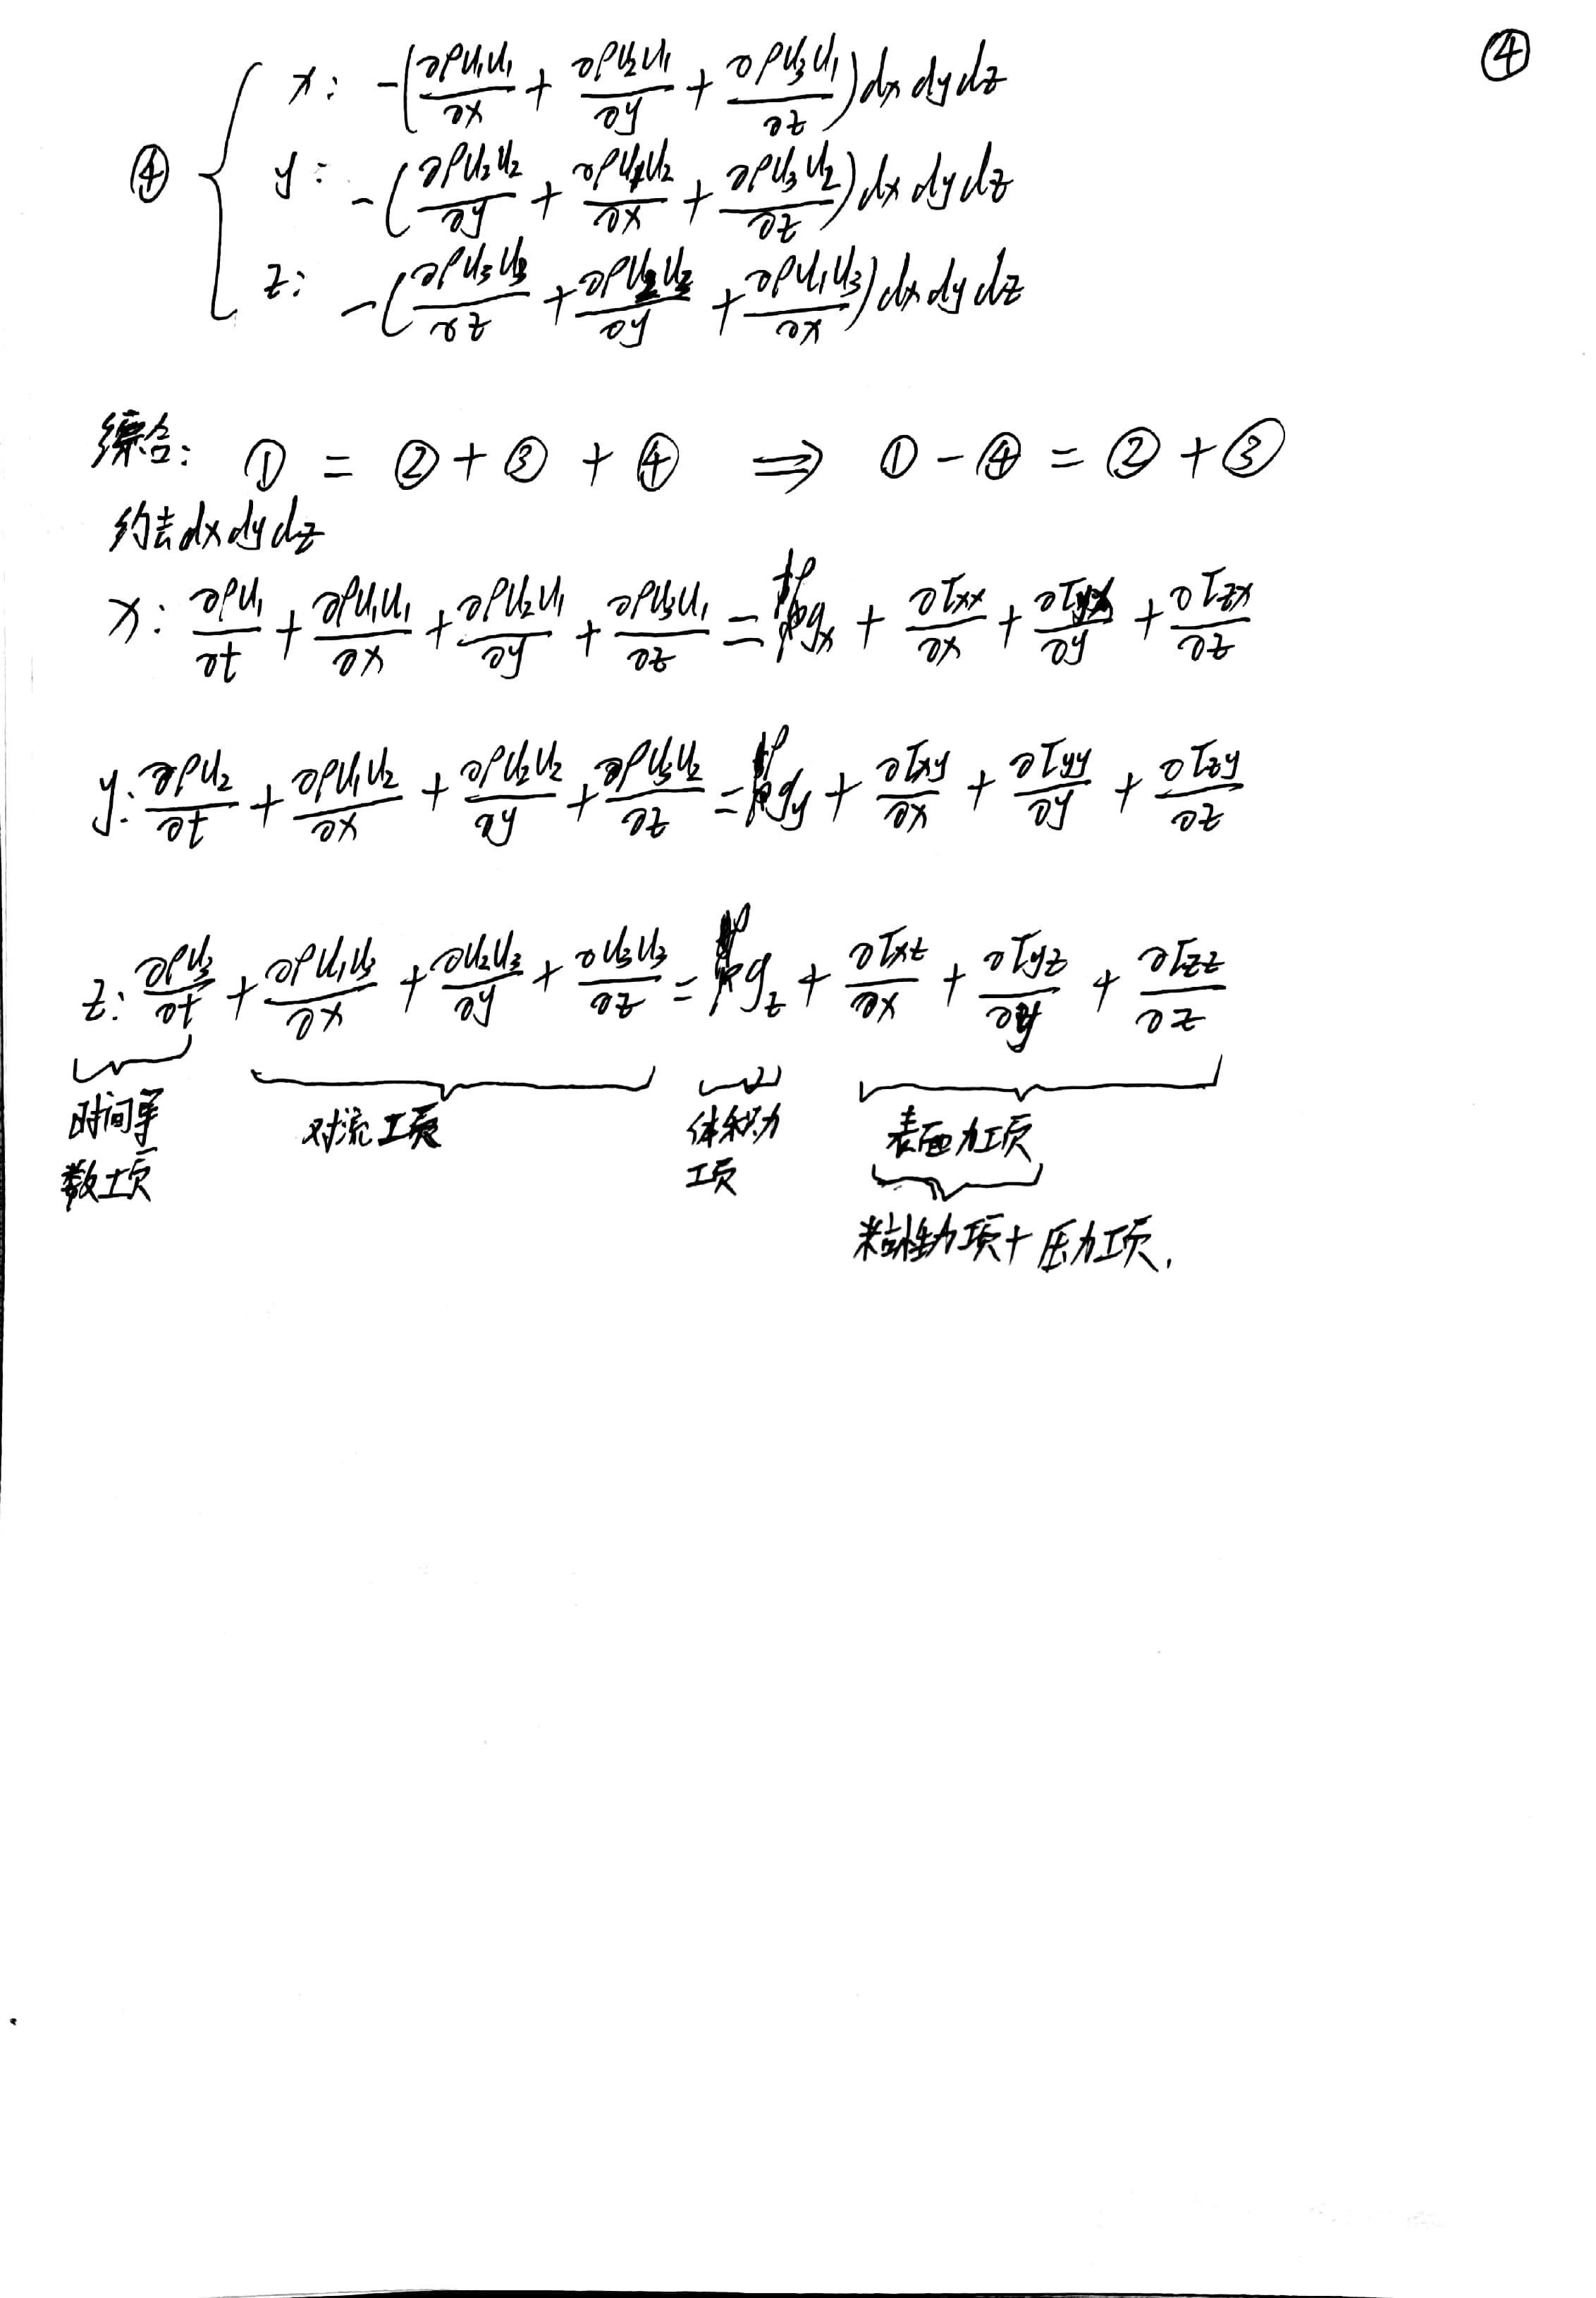 ④
x: -(∂ρu₁u₁/∂x + ∂ρu₂u₁/∂y + ∂ρu₃u₁/∂z)dxdydz
④ y: -(∂ρu₂u₂/∂y + ∂ρu₁u₂/∂x + ∂ρu₃u₂/∂z)dxdydz
z: -(∂ρu₃u₃/∂z + ∂ρu₂u₃/∂y + ∂ρu₁u₃/∂x)dxdydz
综合: ① = ② + ③ + ④ ⟹ ① - ④ = ② + ③
约去dxdydz
x: ∂ρu₁/∂t + ∂ρu₁u₁/∂x + ∂ρu₂u₁/∂y + ∂ρu₃u₁/∂z = ρgₓ + ∂τxx/∂x + ∂τyx/∂y + ∂τzx/∂z
y: ∂ρu₂/∂t + ∂ρu₁u₂/∂x + ∂ρu₂u₂/∂y + ∂ρu₃u₂/∂z = ρgy + ∂τxy/∂x + ∂τyy/∂y + ∂τzy/∂z
z: ∂ρu₃/∂t + ∂ρu₁u₃/∂x + ∂u₂u₃/∂y + ∂u₃u₃/∂z = ρgz + ∂τxz/∂x + ∂τyz/∂y + ∂τzz/∂z
时间导数项
对流项
体积力项
表面力项
粘性力项+压力项.